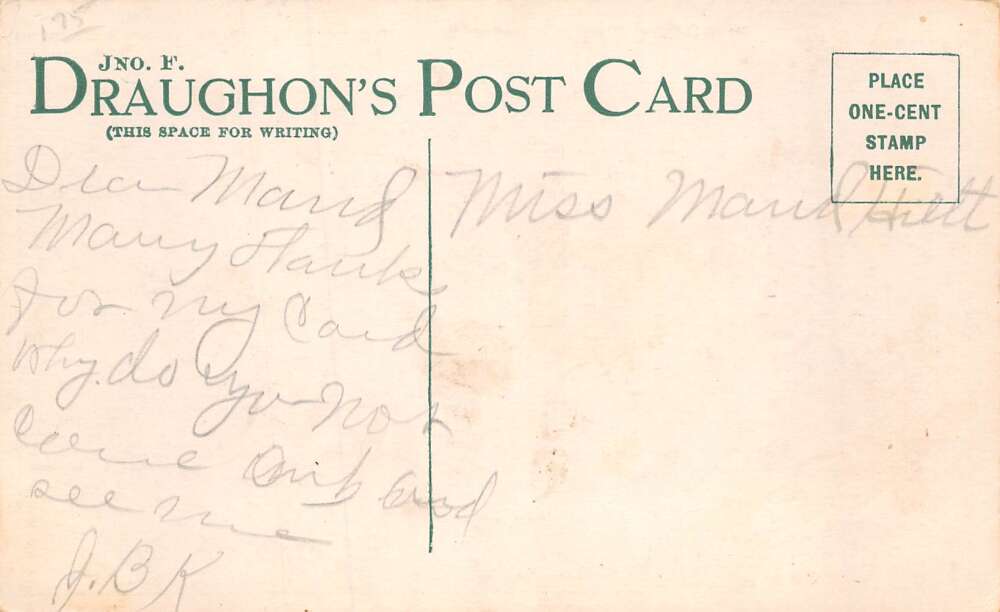 1.75
JNO. F.
DRAUGHON'S POST CARD
(THIS SPACE FOR WRITING)
PLACE
ONE-CENT
STAMP
HERE.
Dear Maud
Many thanks
for my Card
Why do you not
Come and
see me
J.B.K
Miss Maud Hiett